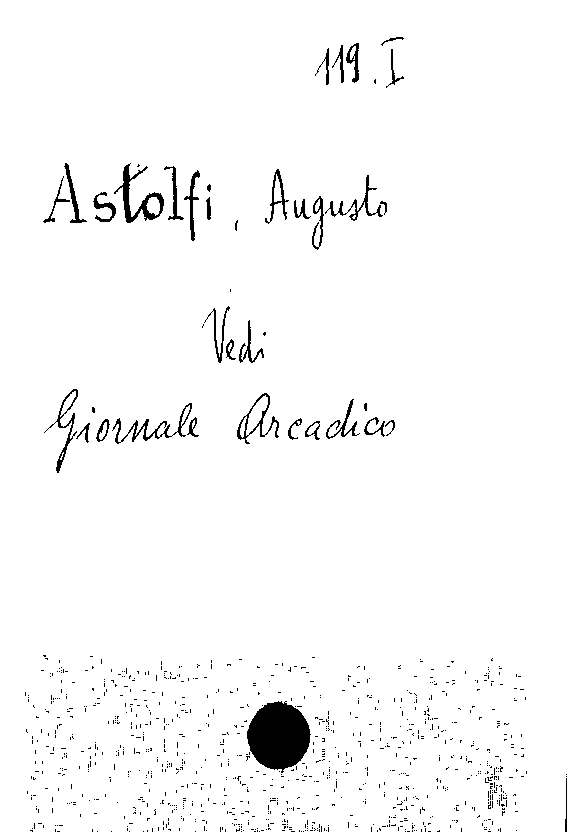 119.I
Astolfi, Augusto
Vedi
Giornale Arcadico